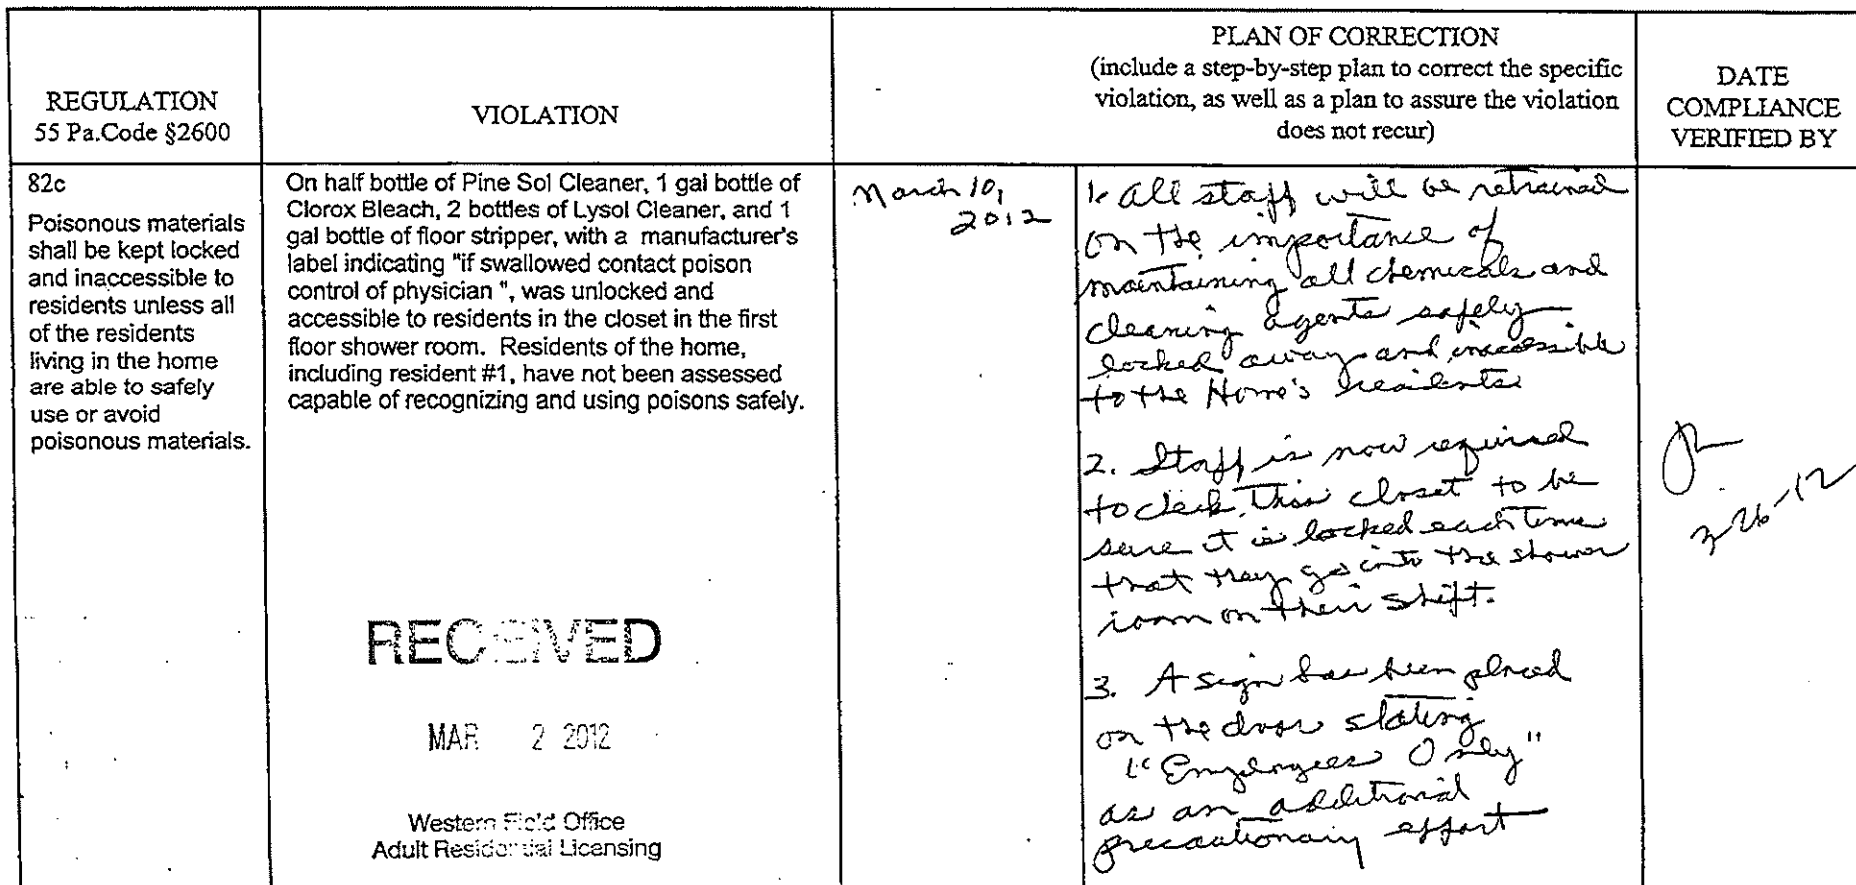 REGULATION
55 Pa.Code §2600
VIOLATION
PLAN OF CORRECTION
(include a step-by-step plan to correct the specific
violation, as well as a plan to assure the violation
does not recur)
DATE
COMPLIANCE
VERIFIED BY
82c
Poisonous materials
shall be kept locked
and inaccessible to
residents unless all
of the residents
living in the home
are able to safely
use or avoid
poisonous materials.
On half bottle of Pine Sol Cleaner, 1 gal bottle of
Clorox Bleach, 2 bottles of Lysol Cleaner, and 1
gal bottle of floor stripper, with a manufacturer's
label indicating "if swallowed contact poison
control of physician ", was unlocked and
accessible to residents in the closet in the first
floor shower room. Residents of the home,
including resident #1, have not been assessed
capable of recognizing and using poisons safely.
RECEIVED
MAR 2 2012
Western Field Office
Adult Residential Licensing
March 10,
2012
1. All staff will be retrained
on the importance of
maintaining all chemicals and
cleaning agents safely
locked away and inaccessible
to the Home's residents
2. Staff is now required
to check this closet to be
sure it is locked each time
that they go into the shower
room on their shift.
3. A sign has been placed
on the door stating
"Employees Only"
as an additional
precautionary effort
3-26-12